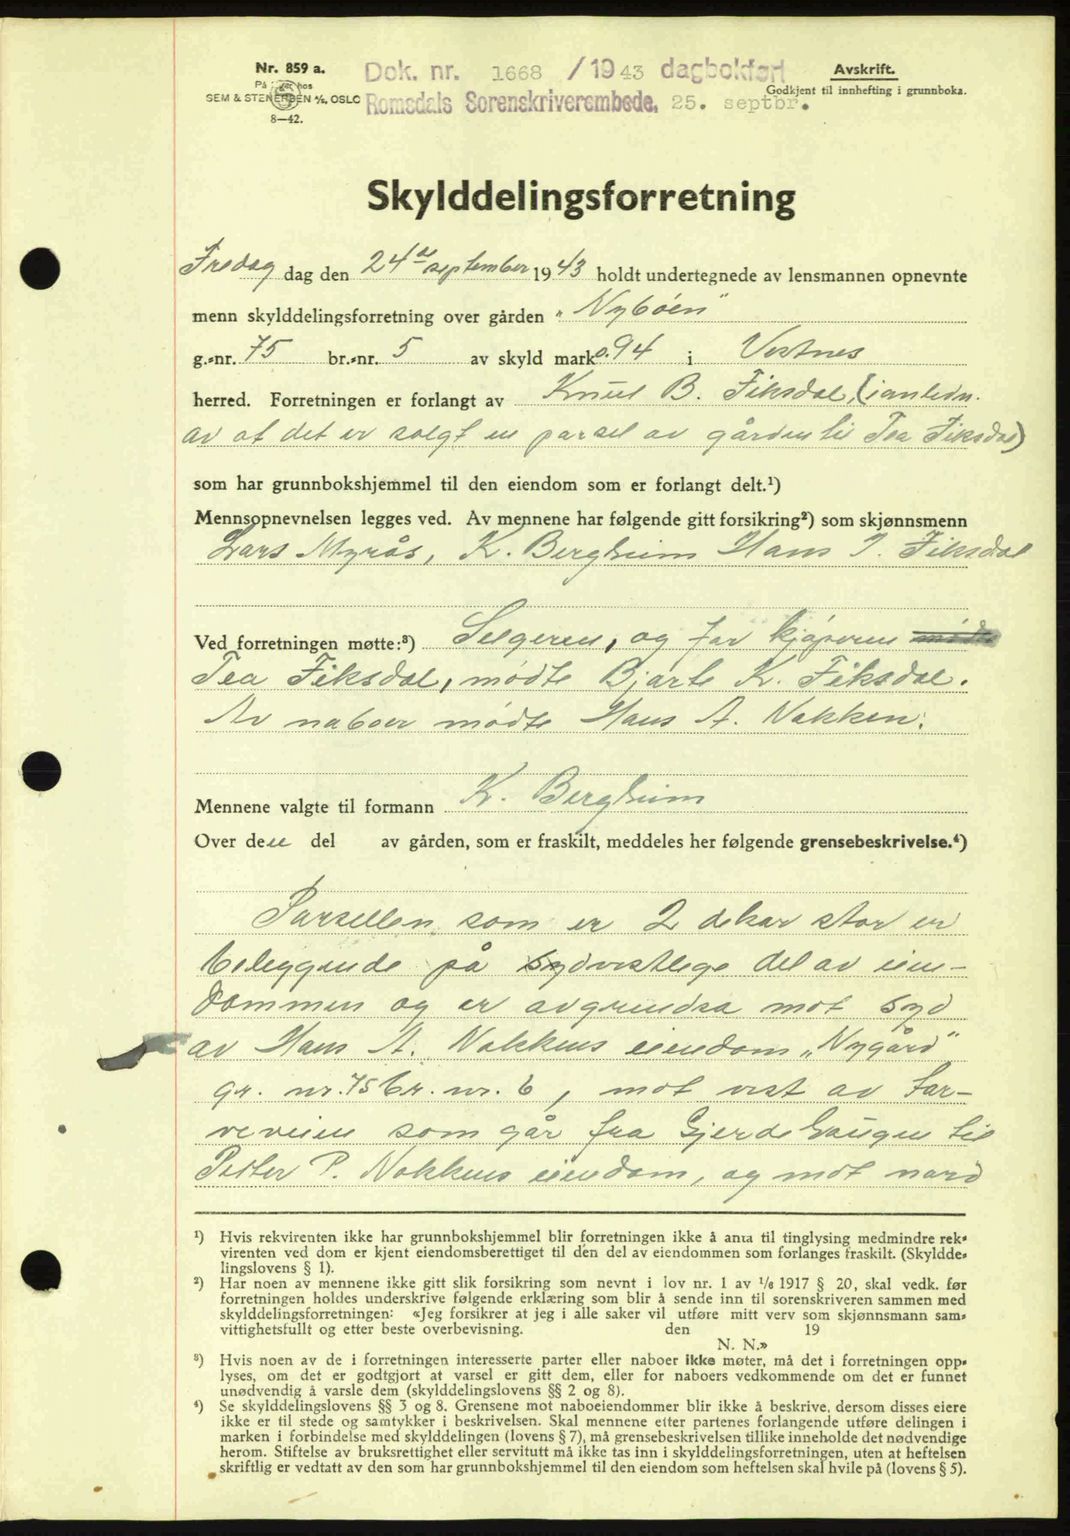 Nr. 859 a.
På lager hos
SEM & STENERSEN A/S, OSLO
8—42.
Dok. nr. 1668 / 1943 dagbokført
Romsdals Sorenskriverembede, 25. septbr.
Avskrift.
Godkjent til innhefting i grunnboka.
Skylddelingsforretning
Fredag dag den 24de september 1943 holdt undertegnede av lensmannen opnevnte
menn skylddelingsforretning over gården "Nybøen"
g.-nr. 75 br.-nr. 5 av skyld mark 0.94 i Vestnes
herred. Forretningen er forlangt av Knut B. Fiksdal, (i anledn.
av at det er solgt en parsel av gården til Tea Fiksdal)
som har grunnbokshjemmel til den eiendom som er forlangt delt.¹)
Mennsopnevnelsen legges ved. Av mennene har følgende gitt forsikring²) som skjønnsmenn
Lars Myrås, K. Bergheim Hans J. Fiksdal
Ved forretningen møtte:³) Selgeren, og for kjøperen mødte
Tea Fiksdal, mødte Bjarte K. Fiksdal.
Av naboer mødte Hans A. Nakken.
Mennene valgte til formann K. Bergheim
Over den del av gården, som er fraskilt, meddeles her følgende grensebeskrivelse.⁴)
Parsellen som er 2 dekar stor er
beleggende på sydvestlege del av eien-
dommen og er avgrendsa mot syd
av Hans A. Nakkens eiendom "Nygård"
gr. nr. 75 br. nr. 6, mot vest av far-
veveien som går fra Gjerdehaugen til
Petter P. Nakkens eiendom, og mot nord
¹) Hvis rekvirenten ikke har grunnbokshjemmel blir forretningen ikke å anta til tinglysing medmindre rek-
virenten ved dom er kjent eiendomsberettiget til den del av eiendommen som forlanges fraskilt. (Skyldde-
lingslovens § 1).
²) Har noen av mennene ikke gitt slik forsikring som nevnt i lov nr. 1 av 1/6 1917 § 20, skal vedk. før
forretningen holdes underskrive følgende erklæring som blir å sende inn til sorenskriveren sammen med
skylddelingsforretningen: «Jeg forsikrer at jeg i alle saker vil utføre mitt verv som skjønnsmann sam-
vittighetsfullt og etter beste overbevisning. den 19
N. N.»
³) Hvis noen av de i forretningen interesserte parter eller naboer ikke møter, må det i forretningen opp-
lyses, om det er godtgjort at varsel er gitt dem, eller for naboers vedkommende om det er funnet
unødvendig å varsle dem (skylddelingslovens §§ 2 og 8).
⁴) Se skylddelingslovens §§ 3 og 8. Grensene mot naboeiendommer blir ikke å beskrive, dersom disses eiere
ikke er til stede og samtykker i beskrivelsen. Skal mennene etter partenes forlangende utføre delingen i
marken i forbindelse med skylddelingen (lovens § 7), må grensebeskrivelsen tillike inneholde det nødvendige
herom. Stiftelse av bruksrettighet eller servitutt må ikke tas inn i skylddelingsforretningen, uten at heftelsen
skriftlig er vedtatt av den som har grunnbokshjemmel til den eiendom som heftelsen skal hvile på (lovens § 5).